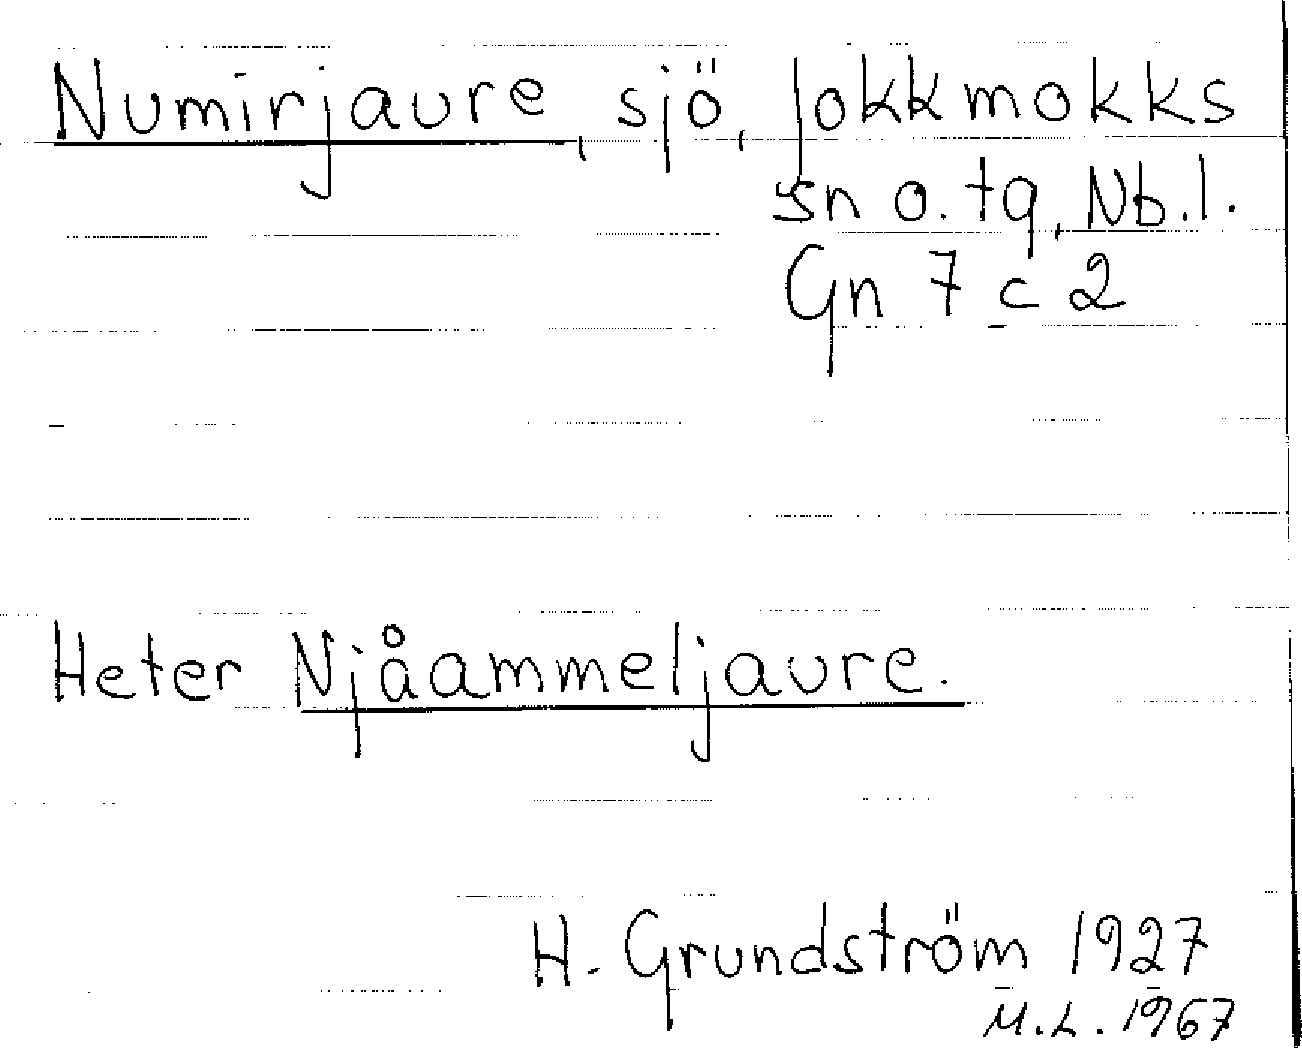 Numirjaure, sjö, Jokkmokks
sn o. tg, Nb.l.
Gn 7 c 2
Heter Njåammeljaure.
H. Grundström 1927
M.L. 1967